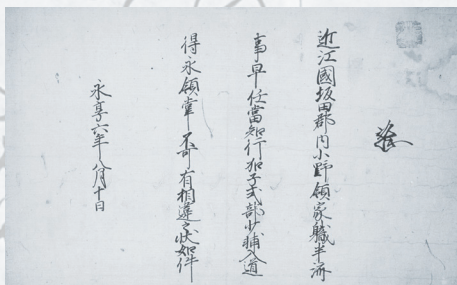 近江國坂田郡内小野領家職半濟
事早任當知行加子式部少輔入道
得永領掌不可有相違之状如件
永享六年八月十日